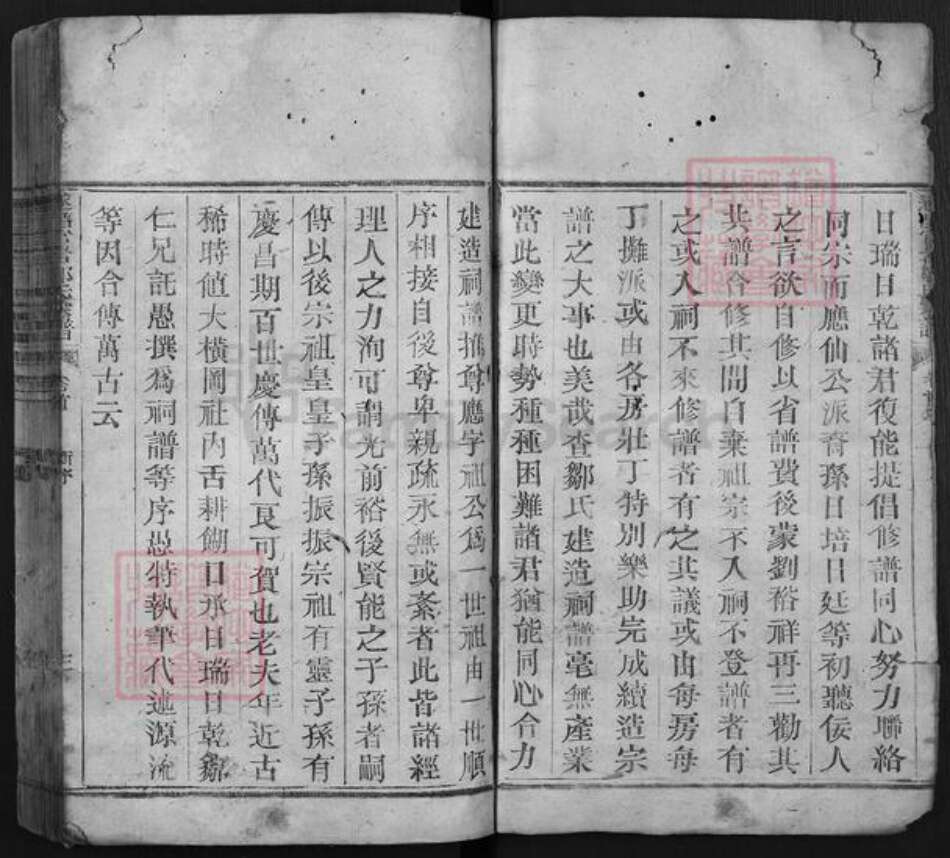 日瑞日乾諸君復能提倡修譜同心努力聯絡
同宗而應仙公派裔孫日培日廷等初聽佞人
之言欲自修以省譜費後蒙劉裕祥再三勸其
共譜合修其間自棄祖宗不入祠不登譜者有
之或入祠不來修譜者有之其議或由每房每
丁攤派或由各房壯丁特別樂助完成續造宗
譜之大事也美哉查鄒氏建造祠譜毫無產業
當此變更時勢種種困難諸君猶能同心合力
建造祠譜推尊應字祖公爲一世祖由一世順
序相接自後尊卑親疏永無或紊者此皆諸經
理人之力洵可謂光前裕後賢能之子孫者嗣
傳以後宗祖皇皇子孫振振宗祖有靈子孫有
慶昌期百世慶傳萬代良可賀也老夫年近古
稀時値大橫岡社內舌耕餬口承日瑞日乾鄒
仁兄託愚撰爲祠譜等序愚特執筆代述源流
等因合傳萬古云
卷首
新序
三
FamilySearch